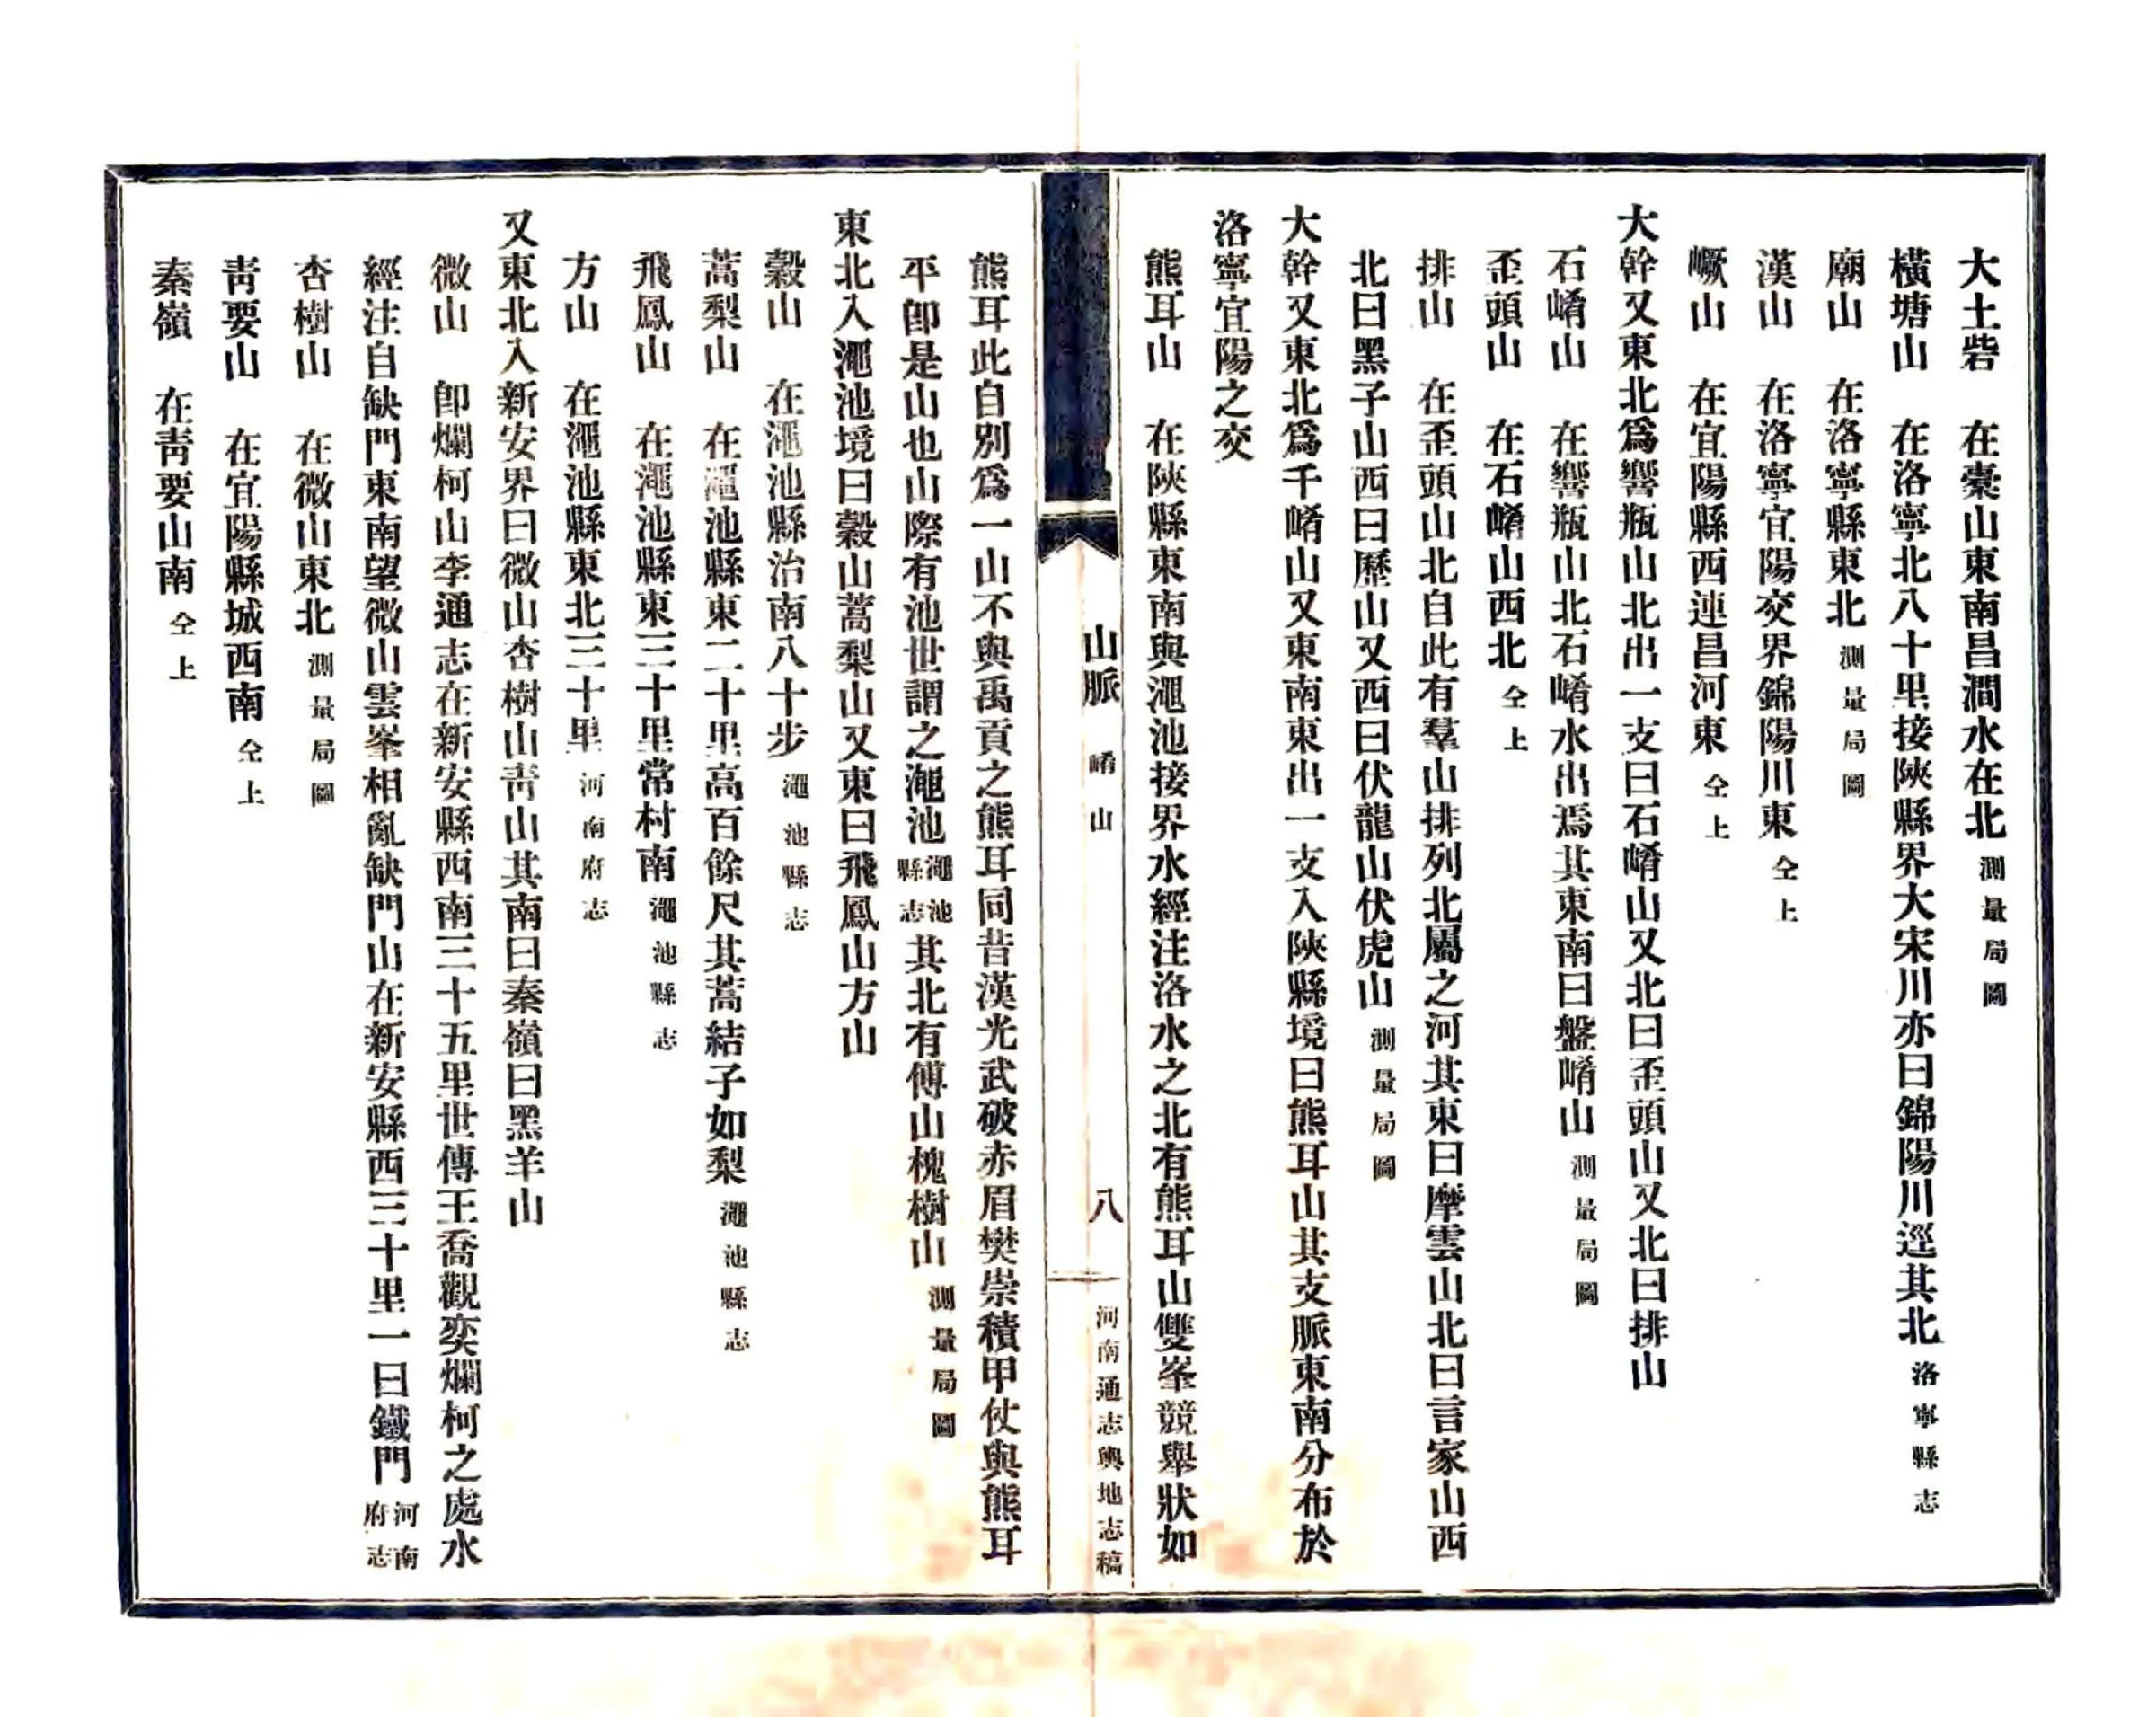 大土砦　在橐山東南昌澗水在北測量局圖
橫塘山　在洛寧北八十里接陝縣界大宋川亦曰錦陽川逕其北洛寧縣志
廟山　在洛寧縣東北測量局圖
漢山　在洛寧宜陽交界錦陽川東仝上
嶥山　在宜陽縣西連昌河東仝上
大幹又東北爲響瓶山北出一支曰石崤山又北曰歪頭山又北曰排山
石崤山　在響瓶山北石崤水出焉其東南曰盤崤山測量局圖
歪頭山　在石崤山西北仝上
排山　在歪頭山北自此有羣山排列北屬之河其東曰摩雲山北曰言家山西
北曰黑子山西曰歷山又西曰伏龍山伏虎山測量局圖
大幹又東北爲千崤山又東南東出一支入陝縣境曰熊耳山其支脈東南分布於
洛寧宜陽之交
熊耳山　在陝縣東南與澠池接界水經注洛水之北有熊耳山雙峯競舉狀如
山脈　崤山　八　河南通志輿地志稿
熊耳此自別爲一山不與禹貢之熊耳同昔漢光武破赤眉樊崇積甲仗與熊耳
平卽是山也山際有池世謂之澠池澠池縣志其北有傅山槐樹山測量局圖
東北入澠池境曰穀山蒿梨山又東曰飛鳳山方山
穀山　在澠池縣治南八十步澠池縣志
蒿梨山　在澠池縣東二十里高百餘尺其蒿結子如梨澠池縣志
飛鳳山　在澠池縣東三十里常村南澠池縣志
方山　在澠池縣東北三十里河南府志
又東北入新安界曰微山杏樹山靑山其南曰秦嶺曰黑羊山
微山　卽爛柯山李通志在新安縣西南三十五里世傳王喬觀奕爛柯之處水
經注自缺門東南望微山雲峯相亂缺門山在新安縣西三十里一曰鐵門河南府志
杏樹山　在微山東北測量局圖
靑要山　在宜陽縣城西南仝上
秦嶺　在靑要山南仝上